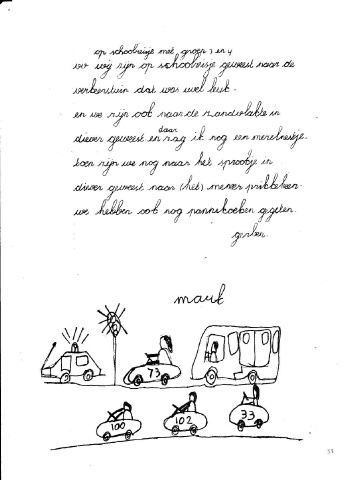 op schoolreisje met groep 3 en 4
wij zijn op schoolreisje geweest naar de
verkeerstuin dat was wel leuk.
en we zijn ook naar de zandvlakte in
diever geweest en daar zag ik nog een merelnestje.
toen zijn we nog naar het sprookje in
diever geweest naar (het) meneer prikkebeen.
we hebben ook nog pannekoeken gegeten.
gerben.
mark
73
100
102
33